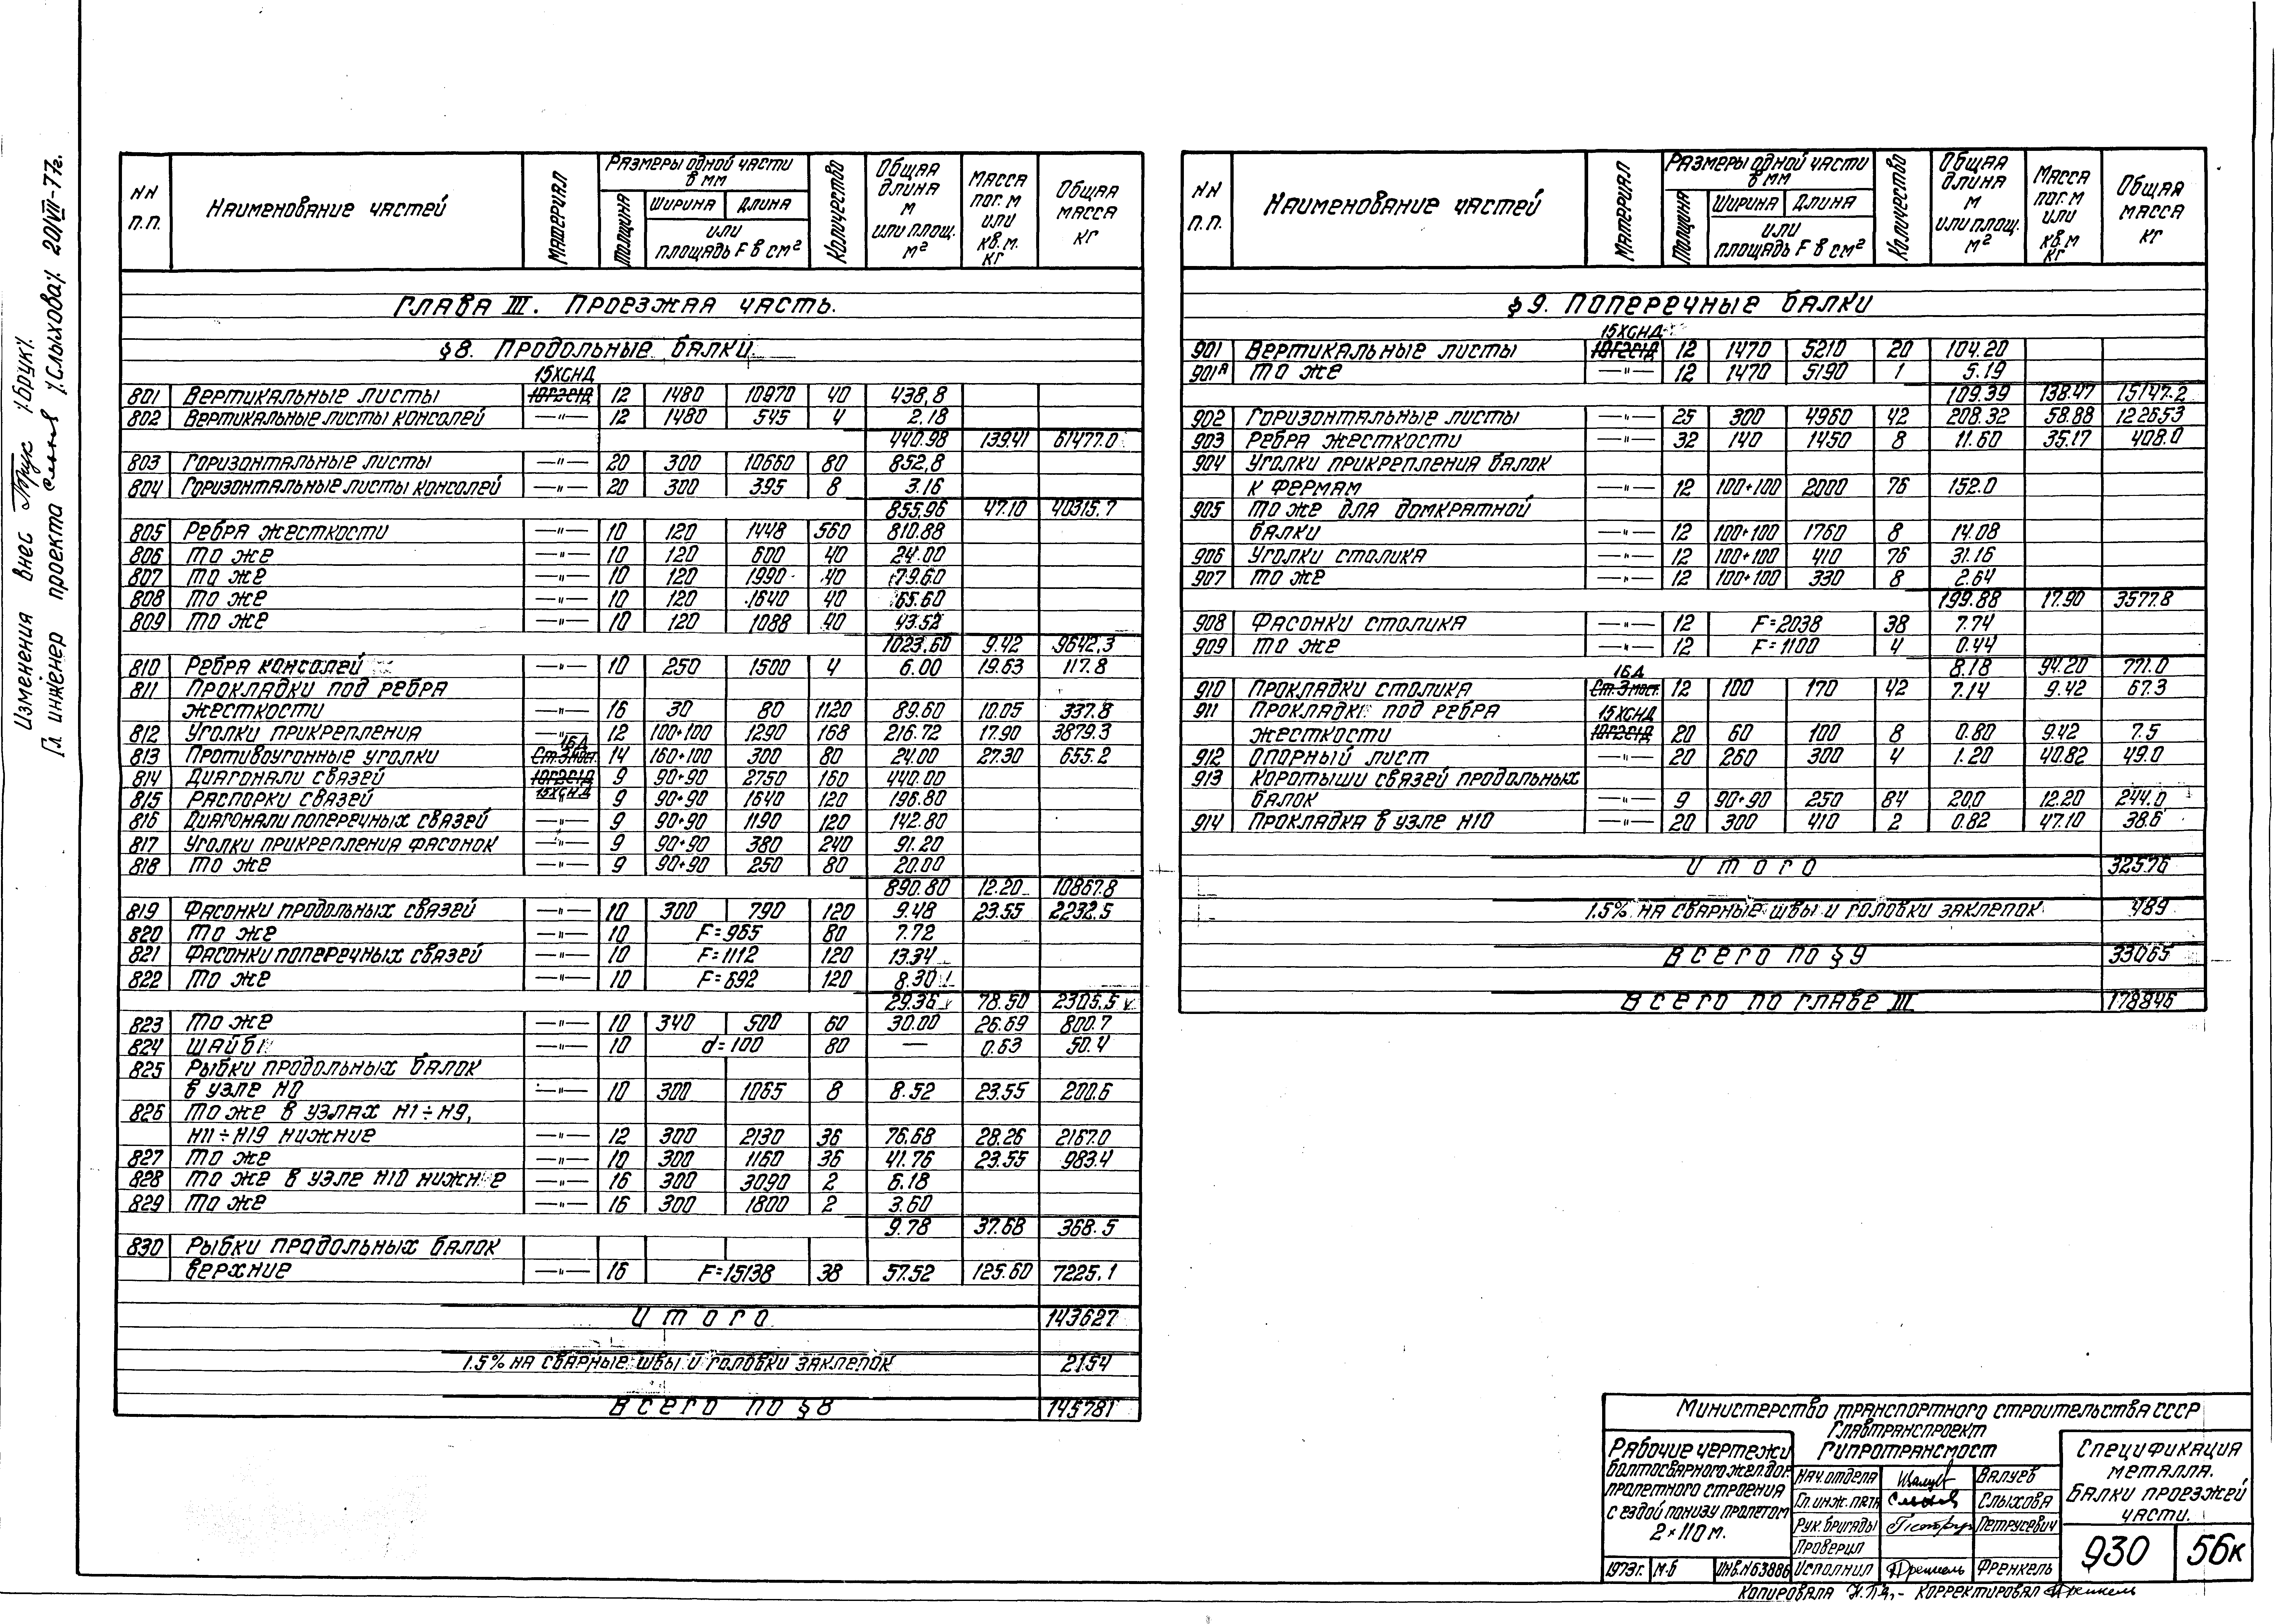 Изменения внес /Брук/.
Гл. инженер проекта /Слыхова/. 20/VII-77г.
NN п.п. Наименование частей Материал Размеры одной части в мм Количество Общая длина м или площ. м² Масса пог. м или кв. м. кг Общая масса кг
Толщина Ширина Длина или площадь F в см²
Глава III. Проезжая часть.
§8. Продольные балки.
15ХСНД
801 Вертикальные листы 10Г2С1Д 12 1480 10970 40 438,8
802 Вертикальные листы консолей —"— 12 1480 545 4 2.18
440.98 139.41 61477.0
803 Горизонтальные листы —"— 20 300 10660 80 852,8
804 Горизонтальные листы консолей —"— 20 300 395 8 3.16
855.96 47.10 40315.7
805 Ребра жесткости —"— 10 120 1448 560 810.88
806 То же —"— 10 120 600 40 24.00
807 То же —"— 10 120 1990 40 79.60
808 То же —"— 10 120 1640 40 65.60
809 То же —"— 10 120 1088 40 43.52
1023.60 9.42 9642,3
810 Ребра консолей —"— 10 250 1500 4 6.00 19.63 117.8
811 Прокладки под ребра
жесткости —"— 16 30 80 1120 89.60 10.05 337.8
812 Уголки прикрепления —"— 12 100*100 1290 168 216.72 17.90 3879.3
16Д
813 Противоугонные уголки Ст.3мост. 14 160*100 300 80 24.00 27.30 655.2
814 Диагонали связей 10Г2С1Д 9 90*90 2750 160 440.00
15ХСНД
815 Распорки связей —"— 9 90*90 1640 120 196.80
816 Диагонали поперечных связей —"— 9 90*90 1190 120 142.80
817 Уголки прикрепления фасонок —"— 9 90*90 380 240 91.20
818 То же —"— 9 90*90 250 80 20.00
890.80 12.20 10867.8
819 Фасонки продольных связей —"— 10 300 790 120 9.48 23.55 2232.5
820 То же —"— 10 F=965 80 7.72
821 Фасонки поперечных связей —"— 10 F=1112 120 13.34
822 То же —"— 10 F=692 120 8.30
29.36 78.50 2305.5
823 То же —"— 10 340 500 60 30.00 26.69 800.7
824 Шайбы —"— 10 d=100 80 — 0.63 50.4
825 Рыбки продольных балок
в узле Н0 —"— 10 300 1065 8 8.52 23.55 200.6
826 То же в узлах Н1÷Н9,
Н11÷Н19 нижние —"— 12 300 2130 36 76.68 28.26 2167.0
827 То же —"— 10 300 1160 36 41.76 23.55 983.4
828 То же в узле Н10 нижние —"— 16 300 3090 2 6.18
829 То же —"— 16 300 1800 2 3.60
9.78 37.68 368.5
830 Рыбки продольных балок
верхние —"— 16 F=15138 38 57.52 125.60 7225.1
Итого 143627
1.5% на сварные швы и головки заклепок 2154
Всего по §8 145781
NN п.п. Наименование частей Материал Размеры одной части в мм Количество Общая длина м или площ. м² Масса пог. м или кв. м кг Общая масса кг
Толщина Ширина Длина или площадь F в см²
§9. Поперечные балки
15ХСНД
901 Вертикальные листы 10Г2С1Д 12 1470 5210 20 104.20
901а То же —"— 12 1470 5190 1 5.19
109.39 138.47 15147.2
902 Горизонтальные листы —"— 25 300 4960 42 208.32 58.88 12265.3
903 Ребра жесткости —"— 32 140 1450 8 11.60 35.17 408.0
904 Уголки прикрепления балок
к фермам —"— 12 100*100 2000 76 152.0
905 То же для домкратной
балки —"— 12 100*100 1760 8 14.08
906 Уголки столика —"— 12 100*100 410 76 31.16
907 То же —"— 12 100*100 330 8 2.64
199.88 17.90 3577.8
908 Фасонки столика —"— 12 F=2038 38 7.74
909 То же —"— 12 F=1100 4 0.44
8.18 94.20 771.0
16Д
910 Прокладки столика Ст.3мост. 12 100 170 42 7.14 9.42 67.3
911 Прокладки под ребра 15ХСНД
жесткости 10Г2С1Д 20 60 100 8 0.80 9.42 7.5
912 Опорный лист —"— 20 260 300 4 1.20 40.82 49.0
913 Коротыши связей продольных
балок —"— 9 90*90 250 84 20,0 12.20 244.0
914 Прокладка в узле Н10 —"— 20 300 410 2 0.82 47.10 38.6
Итого 32576
1.5% на сварные швы и головки заклепок 489
Всего по §9 33065
Всего по главе III 178846
Министерство транспортного строительства СССР
Главтранспроект
Гипротрансмост
Рабочие чертежи
болтосварного жел.дор.
пролетного строения
с ездой понизу пролетом
2×110м.
1973г. М-б Инв.N63886
Нач. отдела Валуев
Гл. инж. пр-та Слыхова
Рук. бригады Петрусевич
Проверил
Исполнил Френкель
Спецификация
металла.
Балки проезжей
части.
930 56к
Копировала Корректировал Френкель